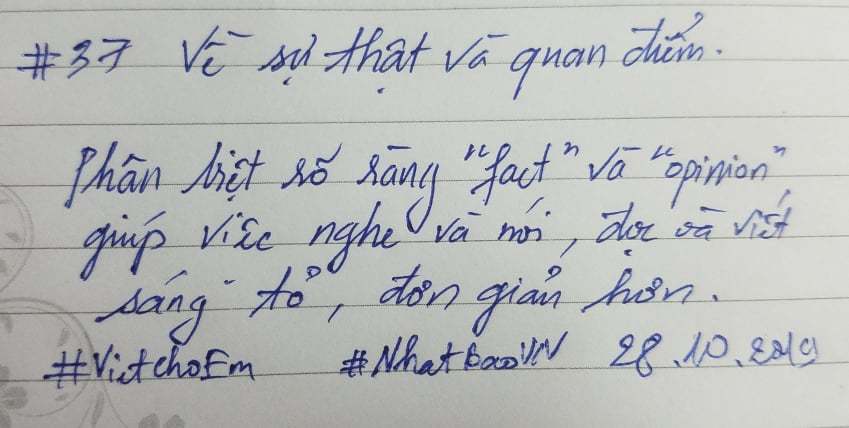 #37 Về sự thật và quan điểm.
Phân biệt rõ ràng "fact" và "opinion"
giúp việc nghe và nói, đọc và viết
sáng tỏ, đơn giản hơn.
#VietchoEm #NhatBaoVN 28.10.2019